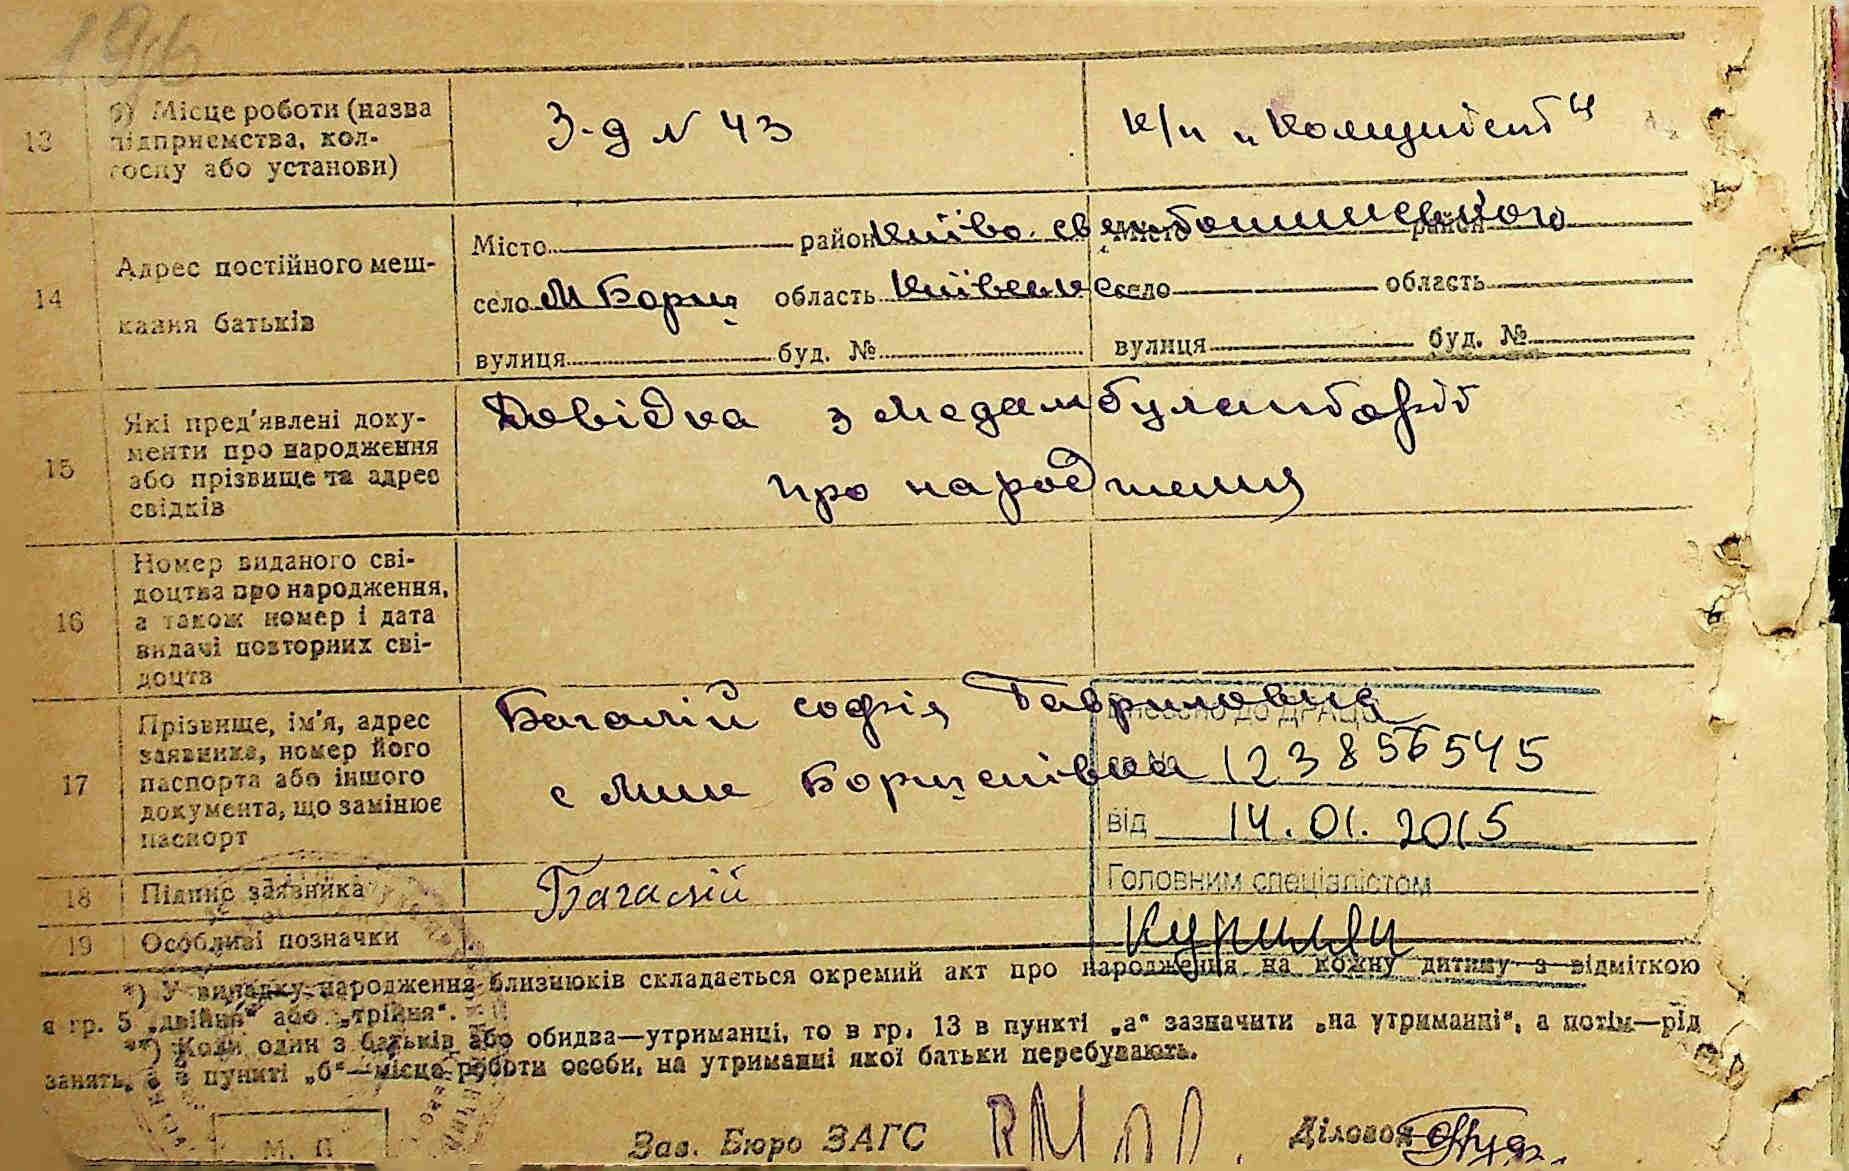 196
13 б) Місце роботи (назва підприємства, кол-
госпу або установи)
З-д N 43
к/п „Комунист"
14 Адрес постійного меш-
кання батьків
Місто район Києво-Святошинського Місто район
село М Борщ область Київська село область
вулиця буд. № вулиця буд. №
15 Які пред'явлені доку-
менти про народження
або прізвище та адрес
свідків
Довідка з медамбулаторії
про народження
16 Номер виданого сві-
доцтва про народження,
а також номер і дата
видачі повторних сві-
доцтв
17 Прізвище, ім'я, адрес
заявника, номер його
паспорта або іншого
документа, що замінює
паспорт
Багалій Софія Гавриловна
с Мик Борщагівка
Внесено до ДРАЦС
за № 123856545
від 14.01.2015
Головним спеціалістом
18 Підпис заявника Багалій
19 Особливі позначки
*) У випадку народження близнюків складається окремий акт про народження на кожну дитину з відміткою
в гр. 5 „двійня" або „трійня".
**) Коли один з батьків або обидва—утриманці, то в гр. 13 в пункті „а" зазначити „на утриманні", а потім—рід
занять, а в пункті „б"—місце роботи особи, на утриманні якої батьки перебувають.
М. П
Зав. Бюро ЗАГС
Діловод